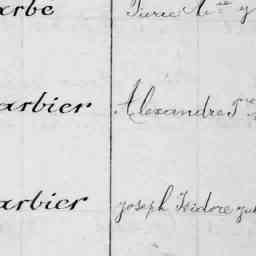 arbe Pierre
arbier Alexandre
arbier Joseph Isidore